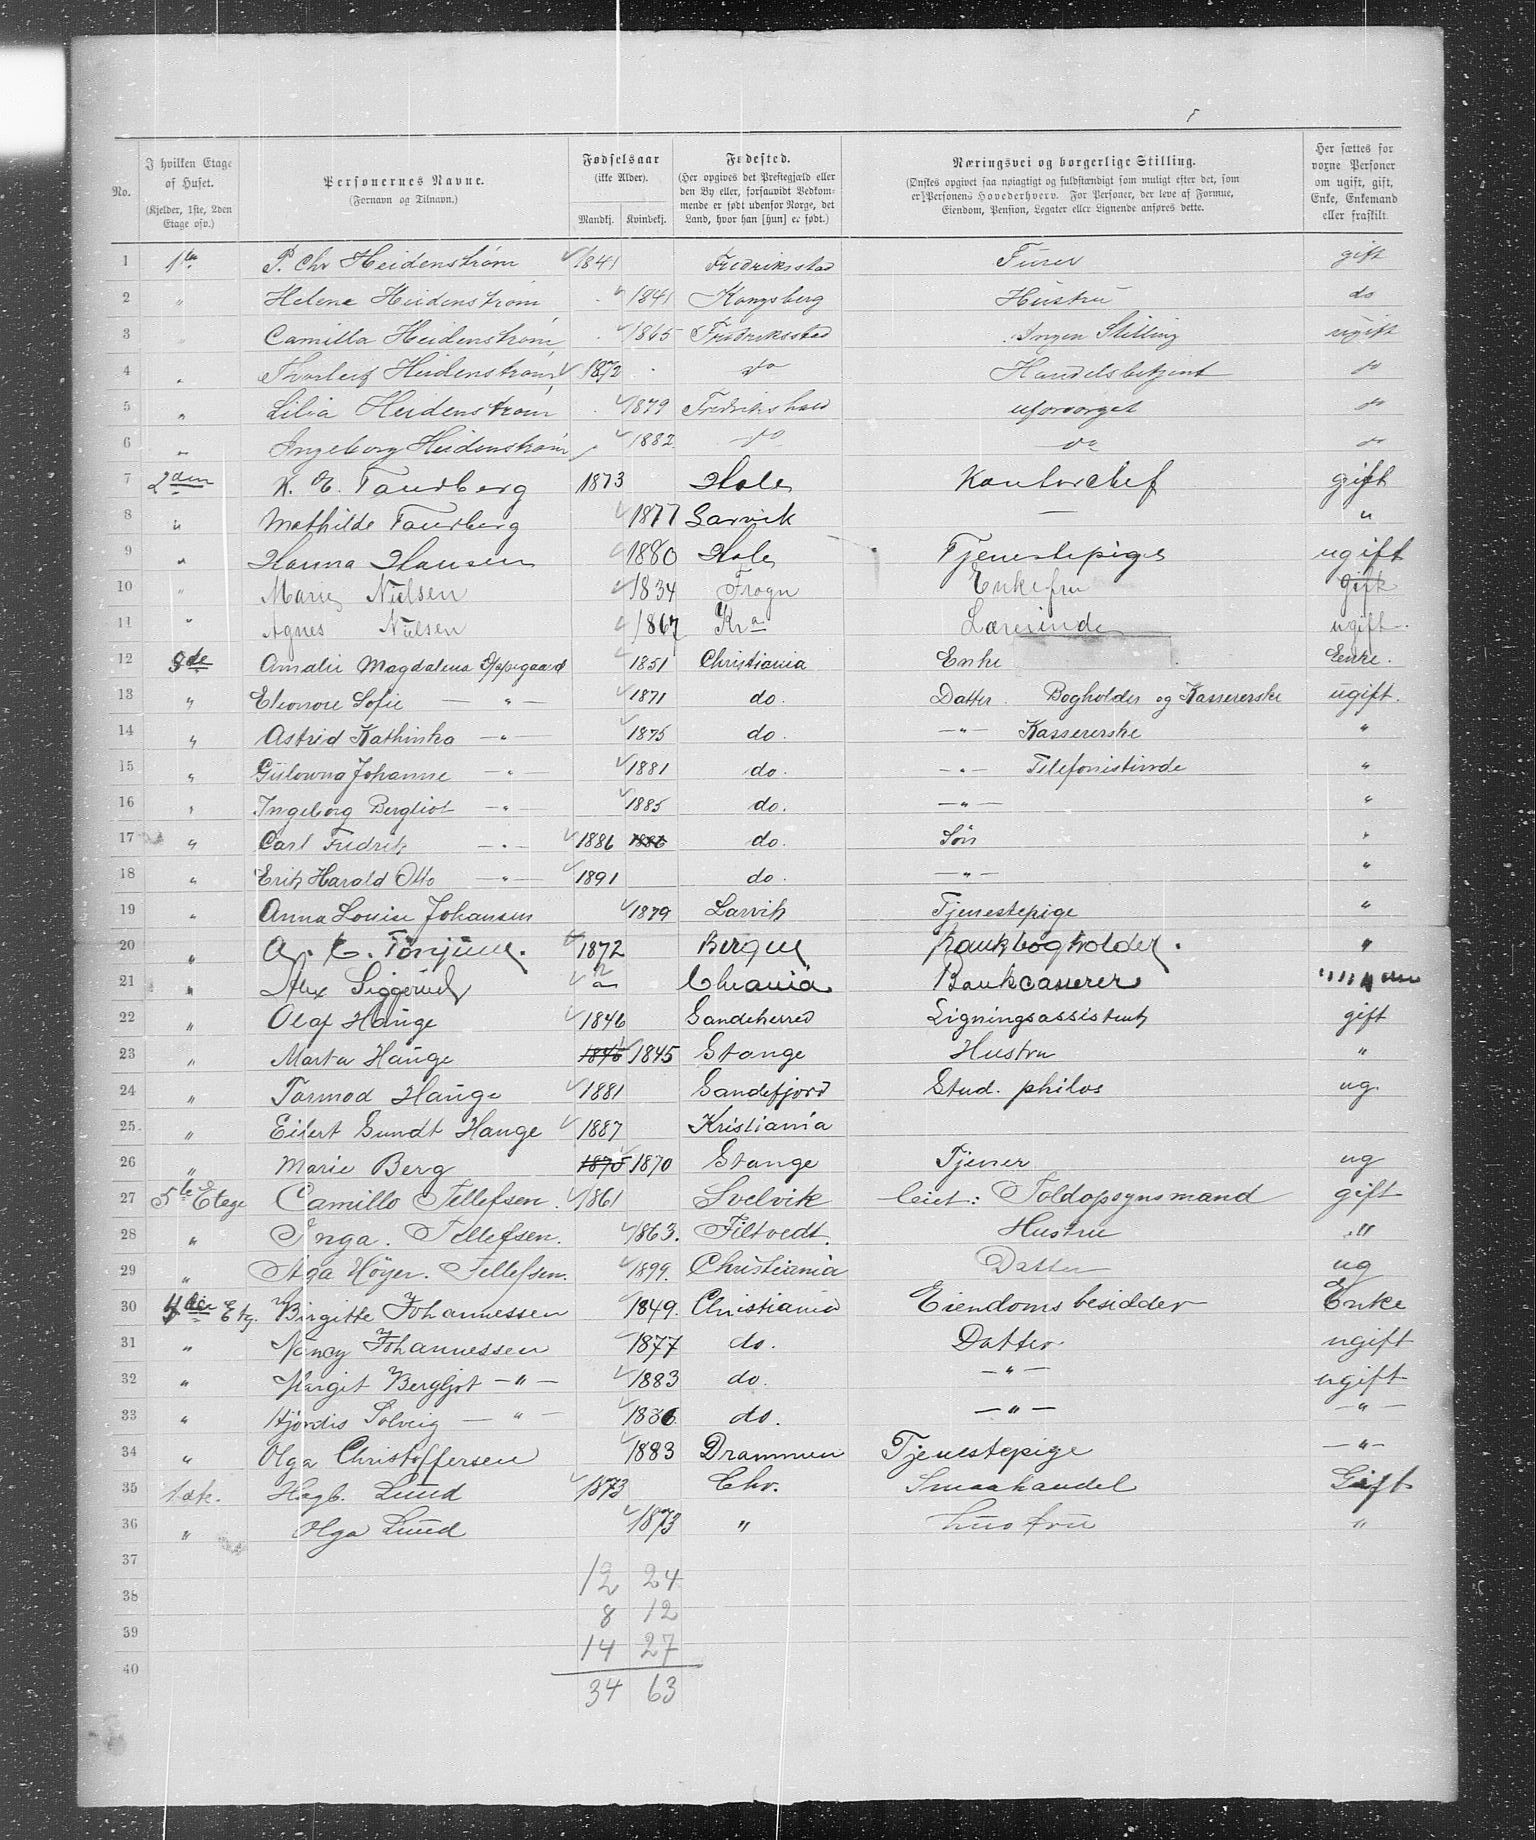 5
No. | I hvilken Etage af Huset. (Kjelder, 1ste, 2den Etage osv.) | Personernes Navne. (Fornavn og Tilnavn.) | Fødselsaar (ikke Alder). Mandkj. Kvindekj. | Fødested. (Her opgives det Prestegjæld eller den By eller, forsaavidt Vedkommende er født udenfor Norge, det Land, hvor han [hun] er født.) | Næringsvei og borgerlige Stilling. (Ønskes opgivet saa nøiagtigt og fuldstændigt som muligt efter det, som er Personens Hovederhverv. For Personer, der leve af Formue, Eiendom, Pension, Legater eller Lignende anføres dette. | Her sættes for voxne Personer om ugift, gift, Enke, Enkemand eller fraskilt.
1 1ste P. Chr Heidenstrøm 1841 Fredriksstad gift
2 " Helene Heidenstrøm 1841 Kongsberg Hustru do
3 " Camilla Heidenstrøm 1865 Fredriksstad Ingen Stilling ugift
4 " Thorleif Heidenstrøm 1872 do Handelsbetjent do
5 " Lilia Heidenstrøm 1879 Fredrikshald uforsorget do
6 " Ingeborg Heidenstrøm 1882 do do do
7 2den K. E. Tandberg 1873 Hole Kontorchef gift
8 " Mathilde Tandberg 1877 Larvik — "
9 " Hanna Hansen 1880 Hole Tjenestepige ugift
10 " Marie Nielsen 1834 Frogn Enkefru gift
11 " Agnes Nielsen 1867 Kra Lærerinde ugift
12 3de Amalie Magdalena Oppegaard 1851 Christiania Enke Enke.
13 " Eleonore Sofie — " — 1871 do. Datter. Bogholder og Kassererske ugift.
14 " Astrid Kathinka — " — 1875 do. — " — Kassererske "
15 " Gulowna Johanne — " — 1881 do. — " — Telefonistinde "
16 " Ingeborg Bergliot — " — 1885 do. — " — "
17 " Carl Fredrik — " — 1886 1886 do. Søn "
18 " Erik Harald Otto — " — 1891 do. — " — "
19 " Anna Louise Johansen 1879 Larvik Tjenestepige "
20 " A. C. Tønjum. 1872 Bergen Bankbogholder. "
21 " Alex Siggerud Chrania Bankcasserer
22 " Olaf Hauge 1846 Sandeherred Ligningsassistent gift
23 " Marta Hauge 1845 1845 Stange Hustru "
24 " Tormod Hauge 1881 Sandefjord Stud. philos ug.
25. " Eilert Sundt Hauge 1887 Kristiania
26 " Marie Berg 1875 1870 Stange Tjener ug
27 5te Etage Camillo Tellefsen. 1861 Svelvik leiet: Toldopsynsmand gift
28 " Inga. Tellefsen. 1863. Filtvedt. Hustru "
29 " Aga Høyer. Tellefsen. 1899. Christiania Datter ug
30 4de Etg. Birgitte Johannessen 1849. Christiania Eiendomsbesidder Enke
31 " Nancy Johannessen 1877 do. Datter ugift
32 " Margit Bergljot — " — 1883 do. — " — ugift
33 " Hjördis Solveig — " — 1886 do. — " — — " —
34 " Olga Christoffersen 1883 Drammen Tjenestepige — " —
35 1ste. Hagb. Lund 1873 Chr. Smaahandel Gift
36 " Olga Lund 1873 " hustru "
37 12 24
38 8 12
39 14 27
40 34 63